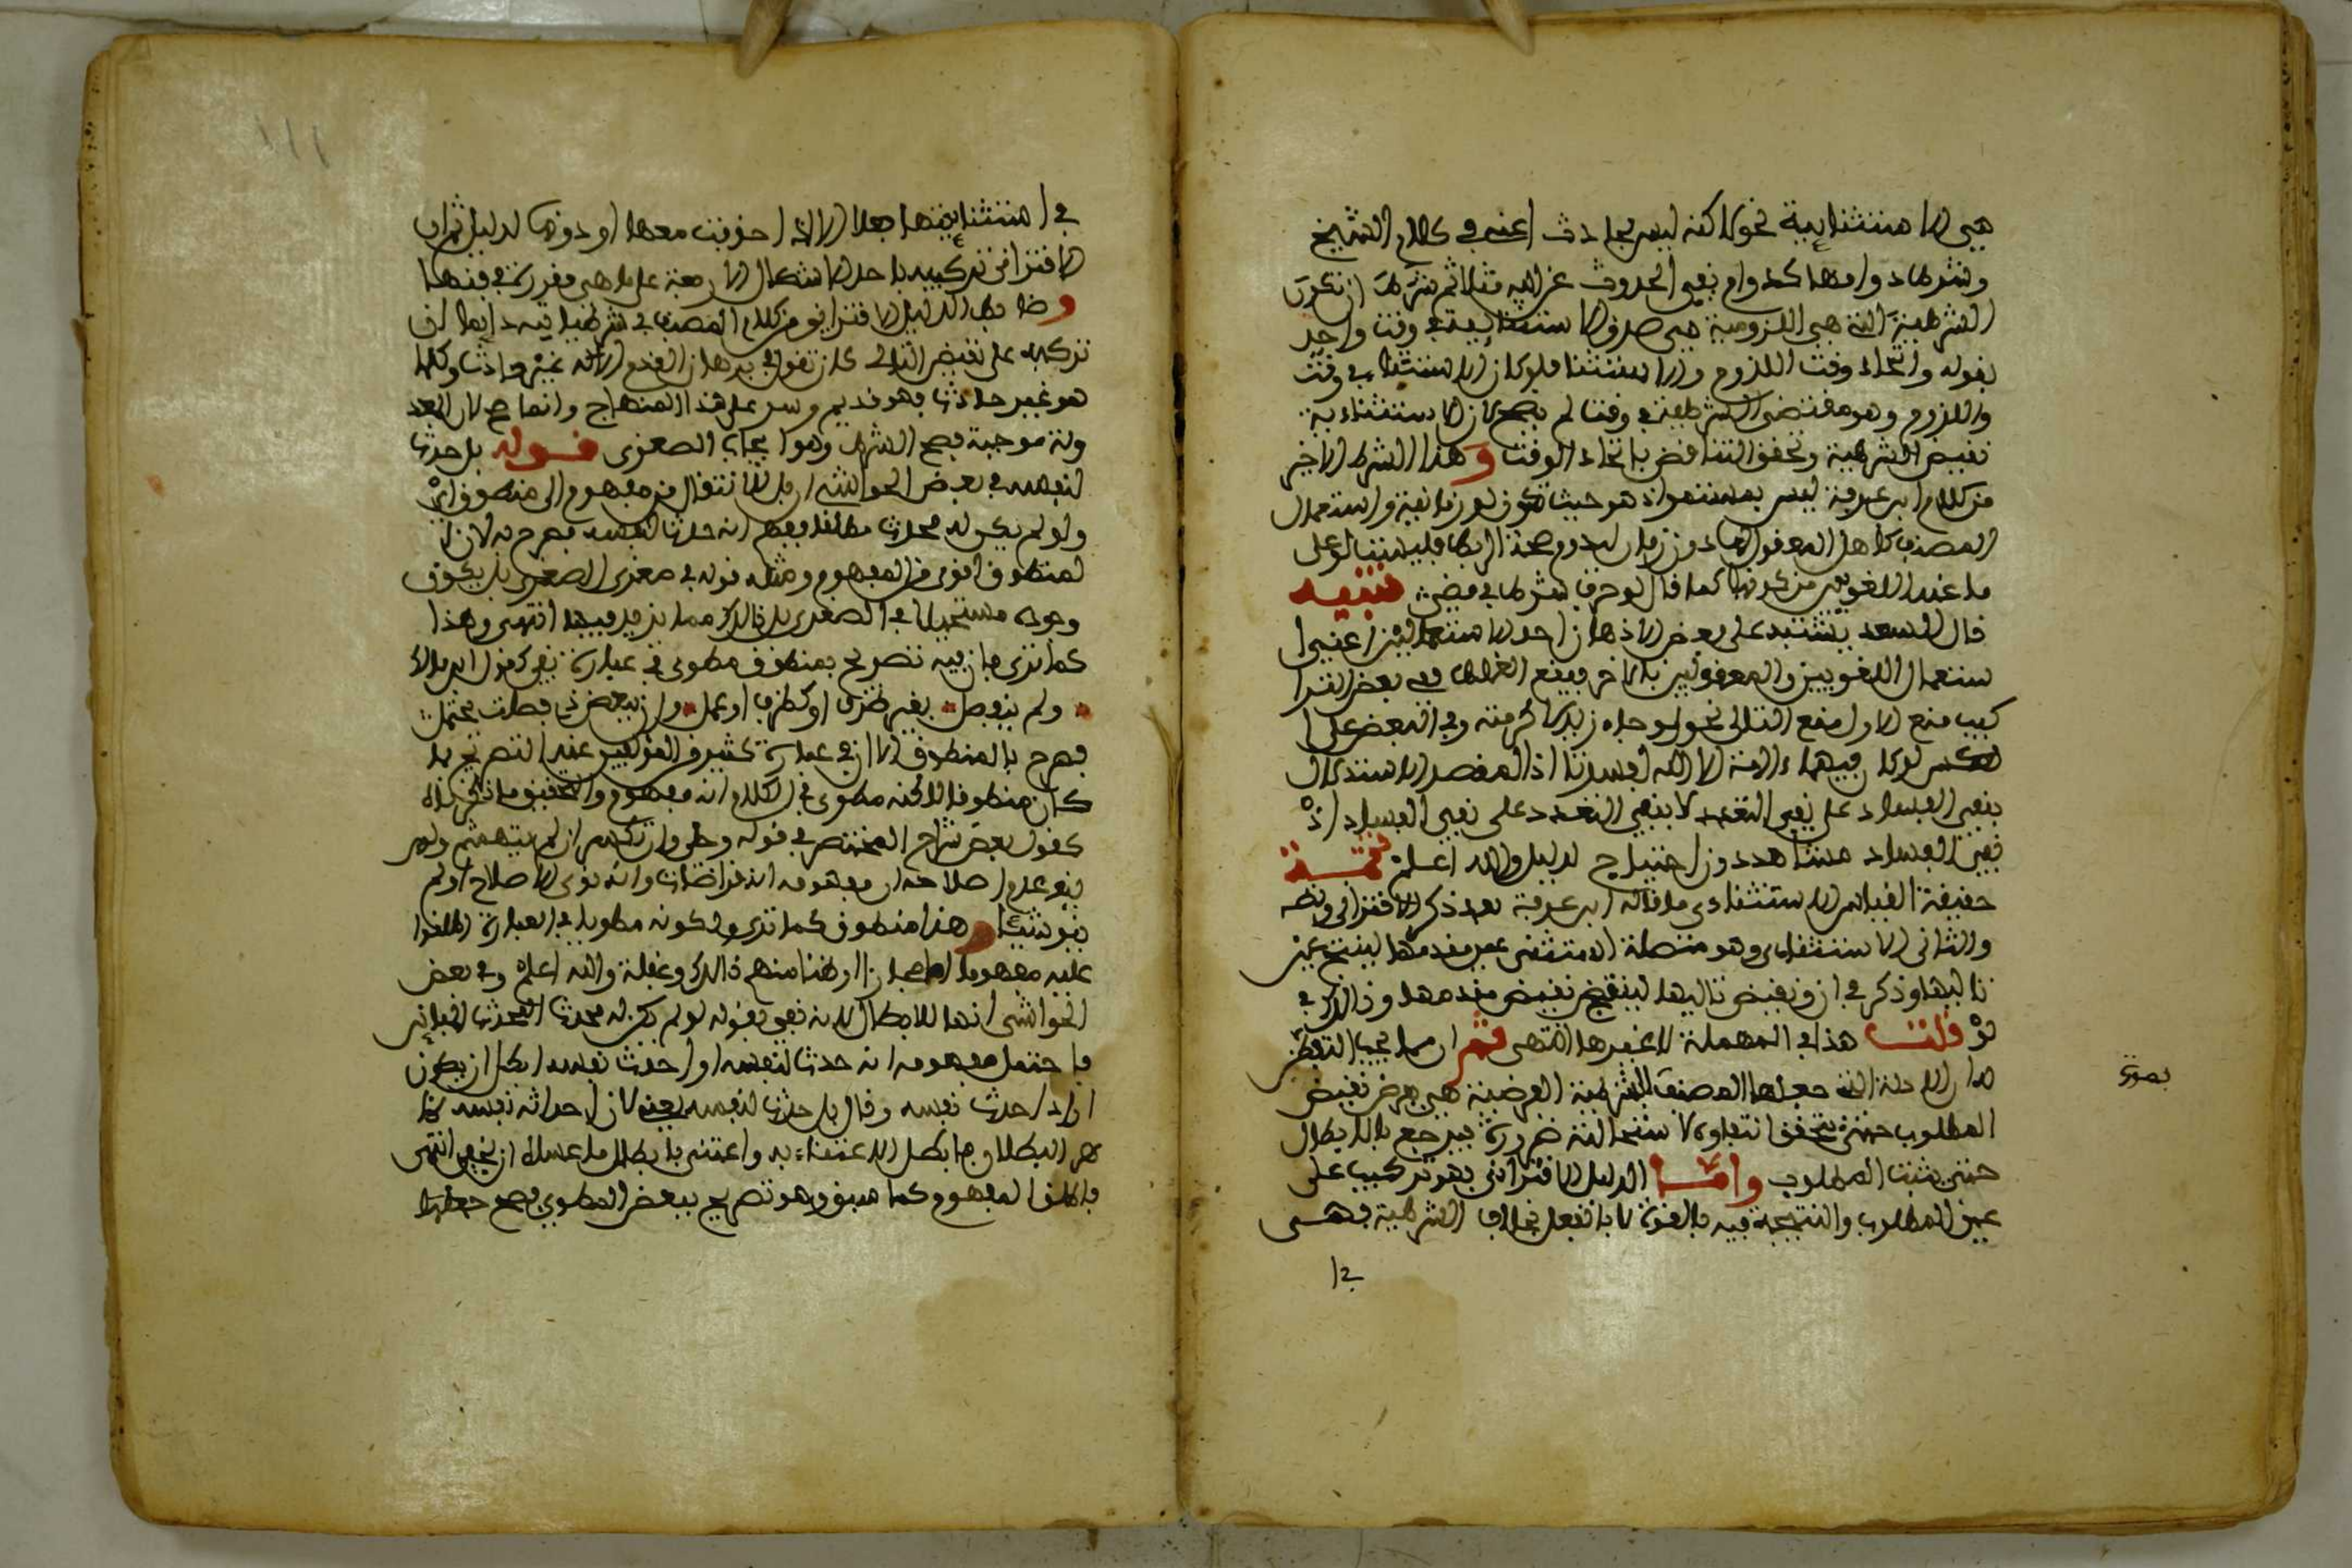 هي الاستثنائية نحو لاكنه ليس بحادث أعني في كلام الشيخ
وشرطها دوامها كدوام نفي الحدوث عن الاله مثلا ثم شرط أن تكون
الشرطية التي هي اللزومية هي صدق الاستثنائية في وقت واحد
بقوله واتحاد وقت اللزوم والاستثناء فلو كان الاستثناء في وقت
واللزوم وهو مقتضى الشرطية في وقت لم يصح لأن الاستثناء به
نقيض الشرطية وتحقق التناقض باتحاد الوقت وهذا الشرط الاخير
من كلام ابن عرفة ليس بمستعمل اذ هو حيث تكون لو زمانية واستعمال
المصنف كأهل المعقول لها دون زمان لدوم صحة الربط فليستا لو على
ما عند اللغويين من كونها كما قال لو حرف شرط في مضي تنبيه
قال السعد يشتبه على بعض الاذهان احد الاستعمالين أعني ا
ستعمال اللغويين والمعقوليين بالاخر فيقع الغلط في بعض الترا
كيب منع الاول منع التالي نحو لو جاء زيد لاكرمته وفي البعض على ا
لعكس لو كان فيهما ءالهة الا الله لفسدتا اذ المقصد الاستدلال
بنفي الفساد على نفي التعدد لا بنفي التعدد على نفي الفساد اذ
نفي الفساد مشاهد دون احتياج لدليل والله اعلم تتمة
حقيقة القياس الاستثنائي ما قاله ابن عرفة بعد ذكر الاقتراني ونصه
والثاني الاستثنائي وهو متصلة استثني عين مقدمها لينتج عين
تاليها وذكر في ان ونقيض تاليها لينتج نقيض مقدمها وذالك في
لو قلت هذا في المهملة لا غيرها انتهى ثم ان مما يجب التفطن
له ان الادلة التي جعلها المصنف الشرطية الفرضية هي فرض نقيض
المطلوب حتى يتحقق انتفاؤه لاستحالته ضرورة فيرجع بالابطال
حتى يثبت المطلوب وأما الدليل الاقتراني فهو تركيب على
عين المطلوب والنتيجة فيه بالقوة لا بالفعل بخلاف الشرطية فهي
في ا
بصورة
في الاستثنائيتها جعلا الا اذا حذفت معها او دونها لدليل ثم ان
الاقتراني تركيبه باحد الاشكال الاربعة على ما هي مقررة في فنها
وضابط الدليل الاقتراني من كلام المصنف في شرطياته دائما أن
تركبه على نقيض التالي كأن تقول في برهان القدم الاله غير حادث وكلما
هو غير حادث فهو قديم وسر على هذا المنهاج وانما صح لان المعد
ولة موجبة فصح الشرط وهو ايجاب الصغرى قوله بل حدث
لنفسه في بعض الحواشي ان بل للانتقال من مفهوم الى منطوق أي
ولو لم يكن له محدث مطلقا يفهم انه حدث لنفسه فصرح به لان ا
لمنطوق اقوى من المفهوم ومثله قوله في صغرى الصغرى بل يكون
وجوده مستحيلا في الصغرى بل ذالك مما يزيد فيها انتهى وهذا
كما ترى بان فيه تصريح بمنطوق مطوي في عبارة نفي كقول ابن مالك
ولم ينفصل بغير ظرف أو كظرف أو عمل وان ببعض ذي فصلت يحتمل
فصرح بالمنطوق الا ان في عبارة كثير من المؤلفين عند التصريح بما
كان منطوقا لاكنه مطوي في الكلام انه مفهوم والتحقيق ما ذكرناه
كقول بعض شراح المختصر في قوله وحل وان تكلم ان لم يتهمثم ولم
ينو عدم اصلاحه ان مفهومه انه فراضات وانه نوى الاصلاح أو لم
ينو شيئا وهذا منطوق كما ترى ولكونه مطويا في العبارة اطلقوا
عليه مفهوما اما مجازا او ظنا منهم ذالك وغفلة والله اعلم وفي بعض
الحواشي انها للابطال لانه نفى بقوله لو لم يكن له محدث المحدث الغير
فاحتمل مفهومه انه حدث لنفسه او احدث نفسه ابطل ان يكون
اراد احدث نفسه وقال بل حدث لنفسه يعني لان احداثه نفسه ظا
هر البطلان فابطل الاعتناء به واعتنى بابطال ما عساه ان يخفى انتهى
فاطلق المفهوم كما سبق وهو تصريح ببعض المطوي فصح جعلها